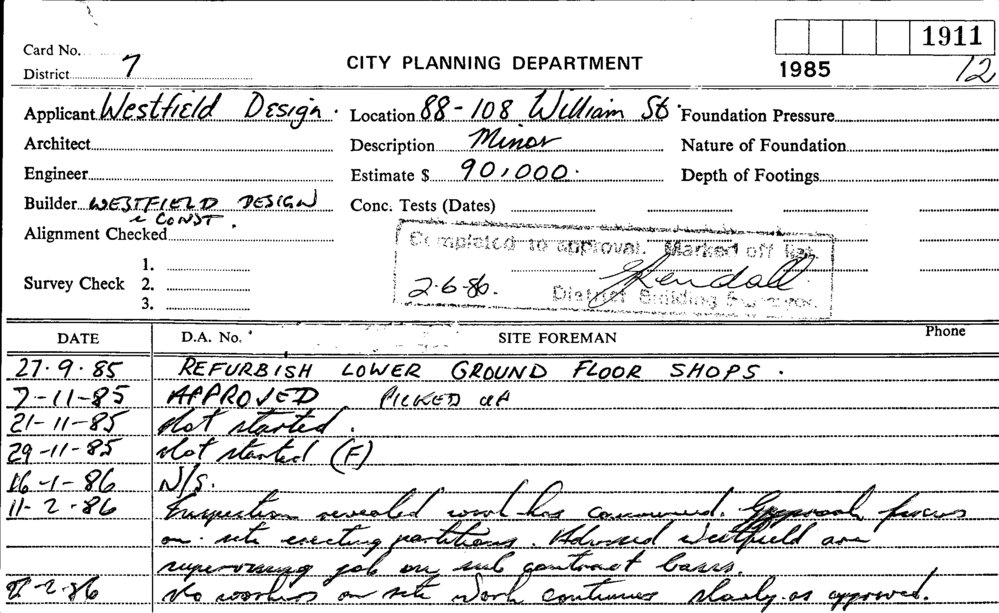 1911
Card No.
District 7
CITY PLANNING DEPARTMENT
1985
12
Applicant Westfield Design. Location 88-108 William St. Foundation Pressure
Architect Description Minor Nature of Foundation
Engineer Estimate $ 90,000. Depth of Footings
Builder WESTFIELD DESIGN Conc. Tests (Dates)
& CONST.
Alignment Checked
Completed to approval. Marked off list
1.
Survey Check 2.
3.
2.6.86. Kendall
District Building Surveyor.
DATE D.A. No. SITE FOREMAN Phone
27.9.85 REFURBISH LOWER GROUND FLOOR SHOPS.
7-11-85 APPROVED PICKED UP
21-11-85 Not started.
29-11-85 Not started (F)
16-1-86 N/S.
11-2-86 Inspection revealed work has commenced.
on site erecting partitions. Advised Westfield are
supervising job on sub contract basis.
-2-86 No workers on site Work continues slowly as approved.